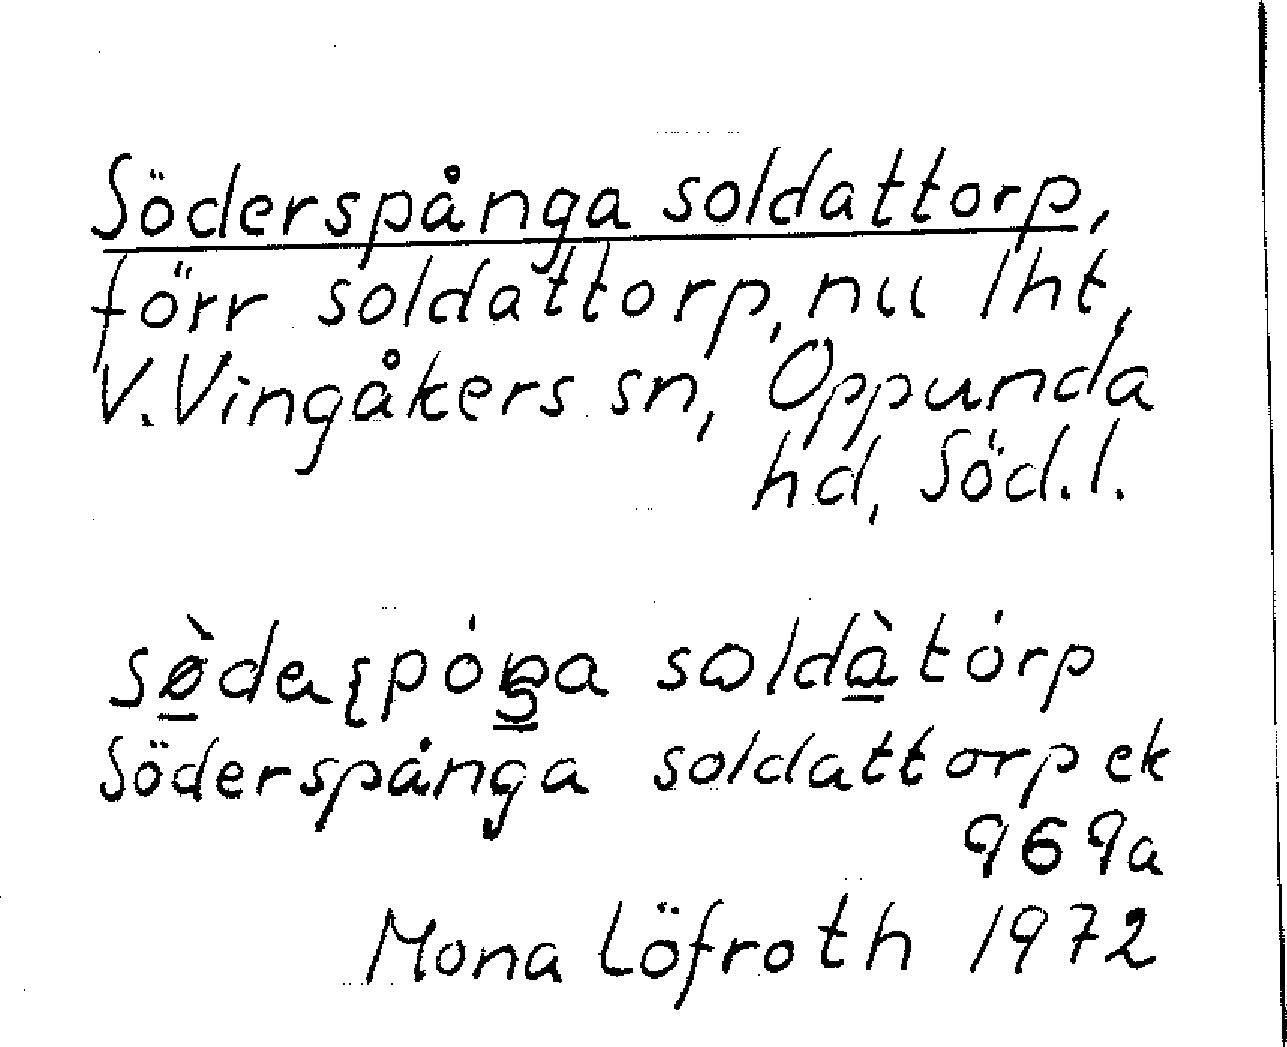 Söderspånga soldattorp,
förr soldattorp, nu lht,
V. Vingåkers sn, Oppunda
hd, Söd.l.
Söderspånga soldattorp ek
969a
Mona Löfroth 1972